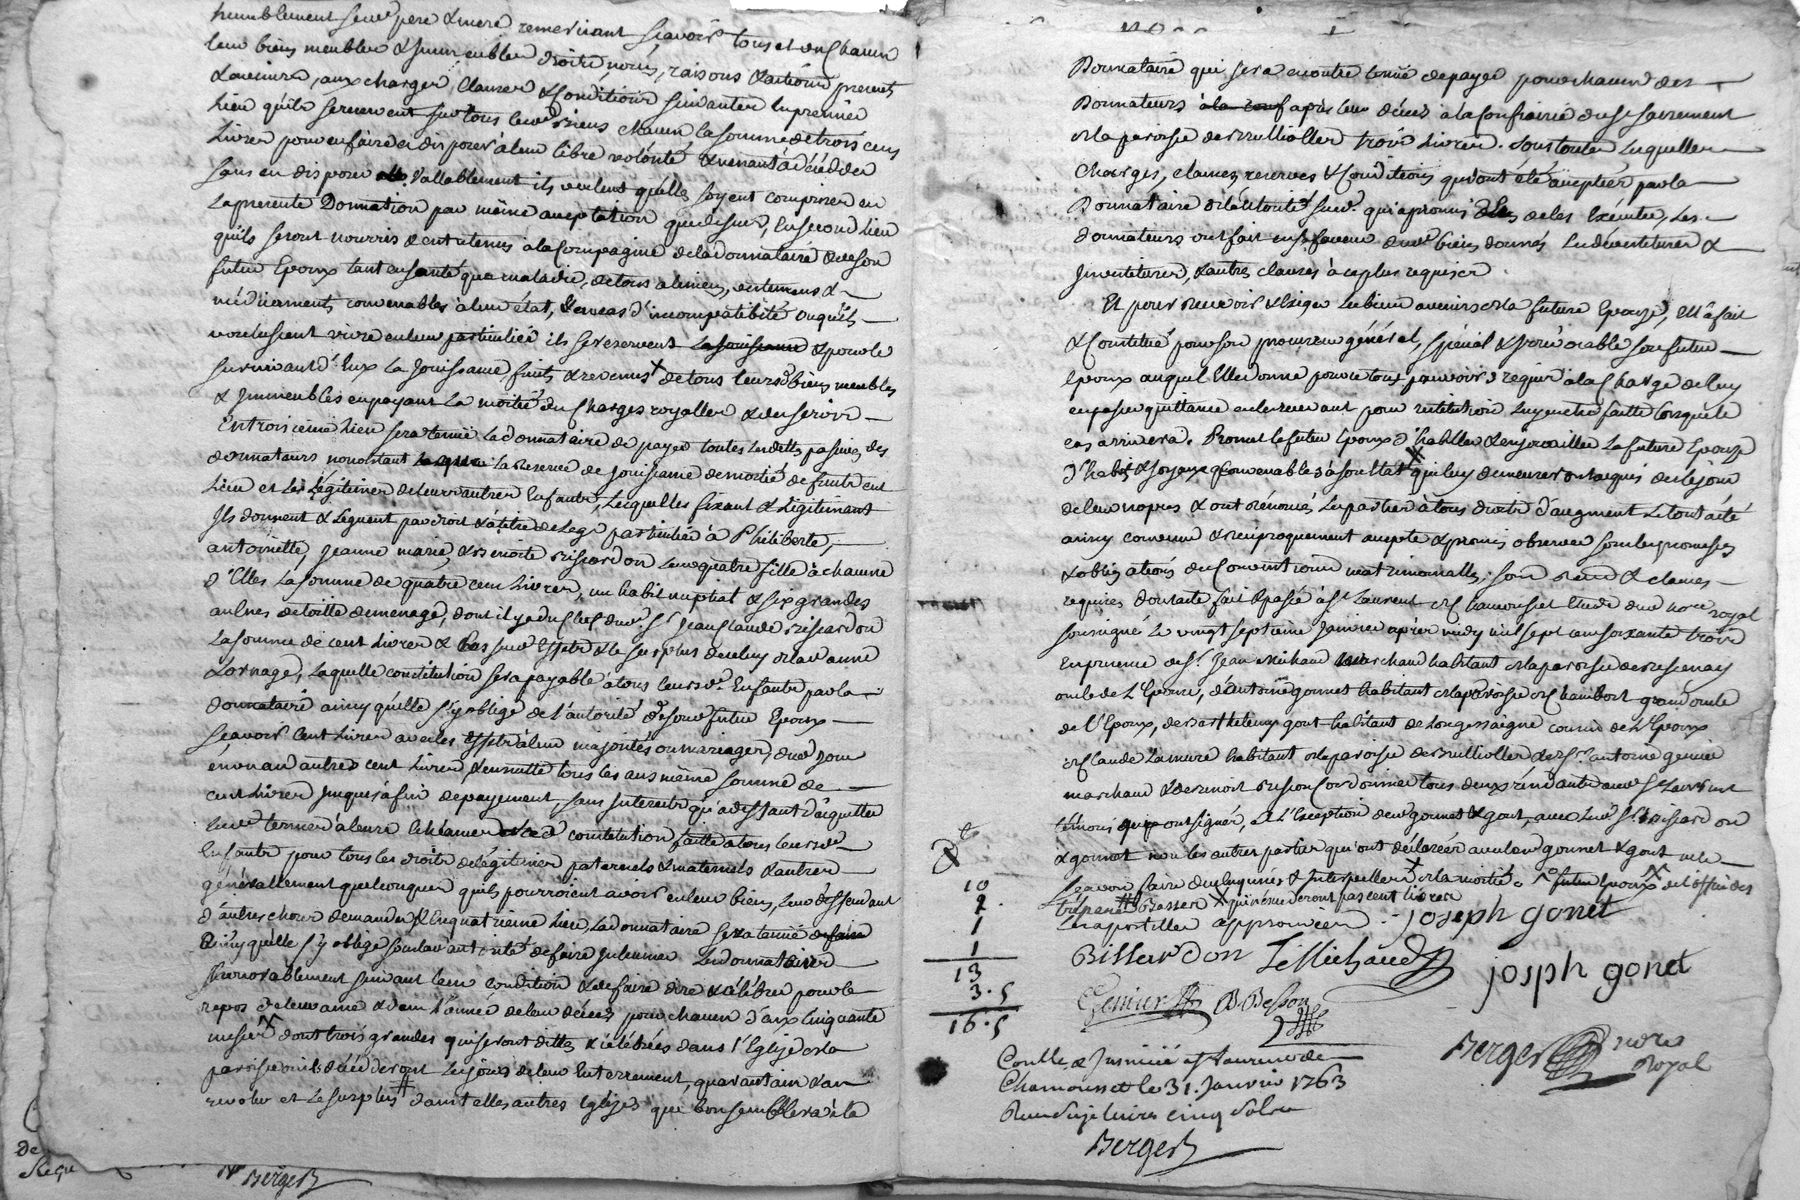 humblement sesd. pere & mere remerciant sçavoir tous et un chacun
leur biens meubles & immeubles droits, noms, raisons & actions presents
& avenirs, aux charges, clauses & conditions suivantes en premier
lieu qu'ils se reservent sur tous leursd. biens chacun la somme de trois cens
livres pour en faire et disposer à leur libre volonté & venant à décéder
sans en disposer vallablement ils veulent qu'elles soyent comprises en
la presente Donnation par même acceptation que dessus, en second lieu
qu'ils seront nourris & entretenus à la compagnie de la donnataire & de son
futur Epoux tant en santé que maladie, de tous alimens, vestemens &
médicaments convenables à leur état, & en cas d'incompatibité ou qu'ils
voulussent vivre en leur particulier ils se reservent la jouissance & pour le
survivant d'Eux la jouissance, fruits & revenus de tous leursd. biens meubles
& immeubles en payant la moitié des charges royalles & de servis
En troisieme lieu sera tenüe la donnataire de payer toutes les dettes passives des
donnateurs nonobstant la reserve de jouissance de moitié de fruits
et les légitimes de leurs autres Enfants, lesquelles fixant & légitimant
ils donnent & leguent par droit & à titre de legs particulier à Philiberte,
antoinette, jeanne marie, & Benoite Bissardon leurs quatre fille à chacune
d'Elles la somme de quatre cens livres, un habit nuptial & six grandes
aulnes de toille de menage, dont il y a du chef dud. Sr. jean claude Bissardon
la somme de cent livres & lesd. Effets & le surplus de celuy de lad. anne
Lornage, laquelle constitution sera payable à tous leursd. Enfants par la
donnataire ainsy qu'elle s'y oblige de l'autorité de sond. futur Epoux
sçavoir cent livres avec les effets à leur majorités ou mariages, dud. jour
en un an autres cent livres & ensuitte tous les ans même somme de
cent livres jusques à fin de payement, sans interets qu'a deffaut d'aquitter
lesd. termes à leurs echéances constitution faitte à tous leursd.
Enfants pour tous les droits de légitimes paternels & maternels & autres
générallement quelconques qu'ils pourroient avoir en leur biens, leur deffendant
d'autres choses demander & En quatrieme lieu, la donnataire sera tenüe de faire
ainsy qu'elle s'y oblige sous lad. autorité de faire inhumer les donnateurs
honorablement suivant leur condition & de faire dire & célébrer pour le
repos de leur ame & dans l'année de leur décès pour chacun d'eux cinquante
messes dont trois grandes qui seront dittes & célébrées dans l'Eglise de la
paroisse ou ils décéderont les jours de leur Enterrement, quarantain & an
revolu et le surplus dans telles autres Eglises que bon semblera à la
Berger
Donnataire qui sera encontre tenüe de payer pour chacun des
Donnateurs après leur décès à la confrairie du St sacrement
de la paroisse de Brulliolles trois livres. sous toutes lesquelles
charges, clauses, reserves & conditions qui ont été acceptées par la
Donnataire de l'autorité susd. qui a promis de les Exécuter, les
donnateurs ont fait en sa faveur desd. biens donnés les dévestitures &
investitures, & autres clauses à ce plus requises.
Et pour recevoir & exiger les biens avenirs de la future Epouse, Elle a fait
& constitué pour son procureur général, spécial & irrévocable son futur
Epoux auquel Elle donne pour ce tous pouvoirs requis à la charge de luy
en passer quittance en les recevant pour restitution luy en etre faitte lorsque le
cas arrivera. Promet le futur Epoux d'habiller & enjoyailler la future Epouse
d'habits & joyaux convenables à son Etat qui luy demeureront acquis dès le jour
de leur nopces & ont rénoncé les parties à tous droits d'augment le tout a été
ainsy convenu & réciproquement accepté & promis observer sous les promesses
& obligations de conventions matrimonialles: soûs reund & clauses
requises dont acte fait & passé à St. Laurent de chamousset Etude dud. nore. royal
soussigné le vingt septieme janvier après midy mil sept cens soixante trois
En presence de Sr. jean Michaud marchand habitant de la paroisse de Bessenay
oncle de l'Epouse, d'antoine gonnet habitant de la paroisse de chambost grand oncle
de l'Epoux, de Barthelemy gout habitant de longessaigne cousin de l'Epoux
de claude Lamure habitant de la paroisse de Brulliolles & de Sr. antoine genier
marchand & de Benoit Besson Cordonnier tous deux résidants aud. St. Laurent
témoins qui ont signés, à l'exception desd. gonnet & gout, avec lesd. Srs. Bissardon
& gonnet non les autres parties qui ont déclarées avec led. gonnet & gout ne le
sçavoir faire de ce enquis & interpellés. de la moitié. futur Epoux de l'office des
trépassés basses qui n'excederont pas cent livres
les apostilles approuvées.
joseph gonet
Bissardon JE Michaud josph gonet
Genier B Besson
10
1
1
1
13
3.5
16.5
Berger nore Royal
Conllé & Insinué à St Laurent de
Chamousset le 31. Janvier 1763
Reçu seize livres cinq sols
Berger